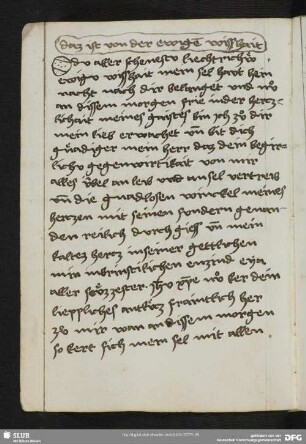 daz ist von der ewigē wisshait
O du aller schenestv liechtrichv̊
ewigv wisshait mein sel haut hein
nacht nach dir belanget vnd nv̊
an dissem morgen frie inder hercz-
lichait meines gaistes bin ich zv̊ dir
mein lieb erwachet vn̄ bit dich
gnädiger mein herr daz dein begir-
lichv gegenwirtikait von mir
alles v̈bel an leib vnd an sel vertreib
vn̄ die gnadlosen winckel meines
hertzen mit seinen sondern genau-
den reilich durch giess vn̄ mein
kaltes hertz in seiner gettlichen
min inbrinstiklichen enzind eya
aller ihū xp̄e nv̊ ker dein
liepliches antlitz fraintlich her
zv̊ mir wan an dissem morgen
so kert sich mein sel mit allen
SLUB
DFG